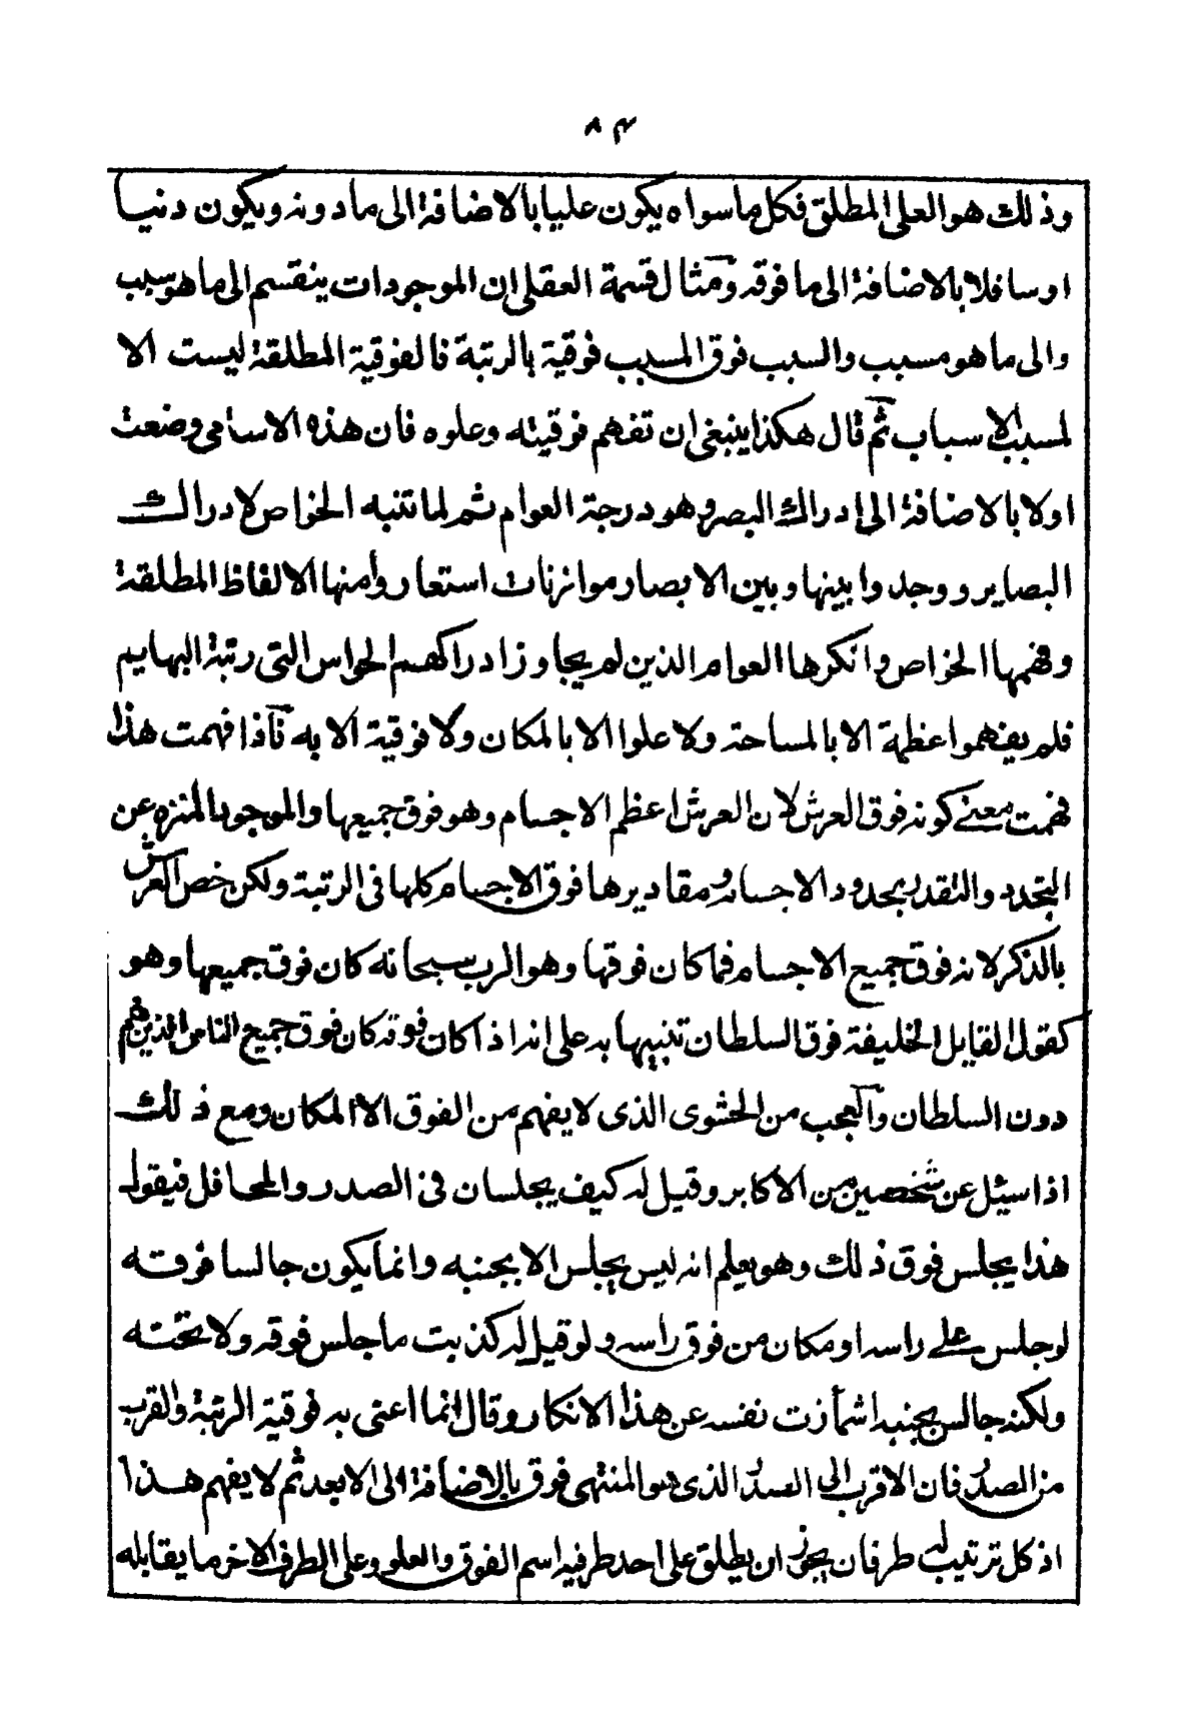 ٨٤
وذلك هو العلى المطلق فكل ما سواه يكون عليا بالاضافة الى ما دونه ويكون دنيا
او سافلا بالاضافة الى ما فوقه ومثال قسمة العقلى ان الموجودات ينقسم الى ما هو سبب
والى ما هو مسبب والسبب فوق المسبب فوقية بالرتبة فالفوقية المطلقة ليست الا
لمسبب الاسباب ثم قال هكذا ينبغى ان تفهم فوقيته وعلوه فان هذه الاسامى وضعت
اولا بالاضافة الى ادراك البصر وهو درجة العوام ثم لما تنبه الخواص لادراك
البصاير ووجدوا بينها وبين الابصار موازنات استعاروا منها الالفاظ المطلقة
وفهمها الخواص وانكرها العوام الذين لم يجاوز ادراكهم الحواس التى رتبة البهايم
فلم يفهموا عظمة الا بالمساحة ولا علوا الا بالمكان ولا فوقية الا به فاذا فهمت هذا
فهمت معنى كونه فوق العرش لان العرش اعظم الاجسام وهو فوق جميعها والموجود المنزه عن
التحدد والتقدر بحدود الاجسام ومقاديرها فوق الاجسام كلها فى الرتبة ولكن خص العرش
بالذكر لانه فوق جميع الاجسام فما كان فوقها وهو الرب سبحانه كان فوق جميعها وهو
كقول القايل الخليفة فوق السلطان تنبيها به على انه اذا كان فوقه كان فوق جميع الناس الذين هم
دون السلطان والعجب من الحشوى الذى لا يفهم من الفوق الا المكان ومع ذلك
اذا سيئل عن شخصين من الاكابر وقيل له كيف يجلسان فى الصدر والمحافل فيقول
هذا يجلس فوق ذلك وهو يعلم انه ليس يجلس الا بجنبه وانما يكون جالسا فوقه
لو جلس على راسه او مكان من فوق راسه ولو قيل له كذبت ما جلس فوقه ولا تحته
ولكنه جالس بجنبه اشمأزت نفسه عن هذا الانكار وقال انما اعنى به فوقية الرتبة والقرب
من الصدر فان الاقرب الى الصدر الذى هو المنتهى فوق بالاضافة الى الابعد ثم لا يفهم هذا
اذ كل ترتيب له طرفان يجوز ان يطلق على احد طرفيه اسم الفوق والعلو وعلى الطرف الاخر ما يقابله